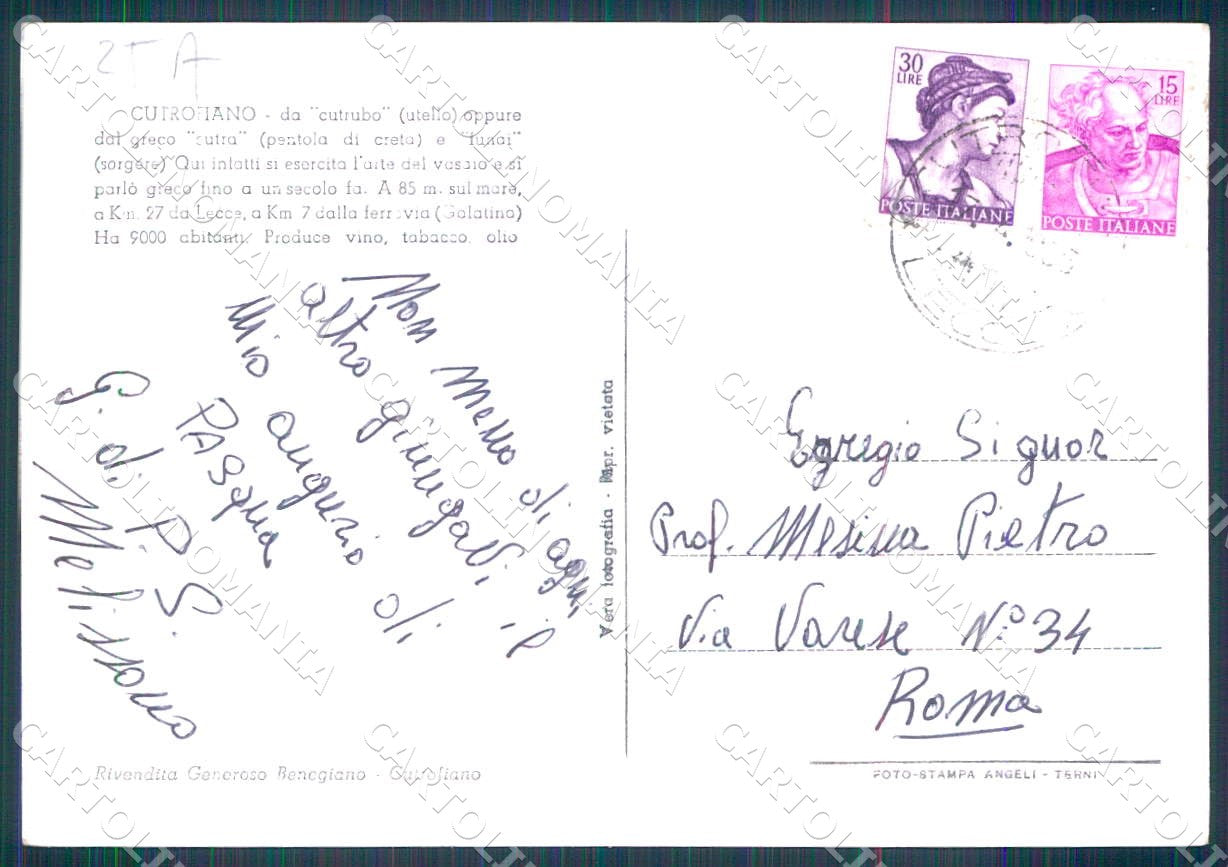 CUTROFIANO - da "cutrubo" (utello) oppure
dal greco "cutra" (pentola di creta) e "funai"
(sorgere) Qui infatti si esercita l'arte del vasaio e si
parlò greco fino a un secolo fa. A 85 m. sul mare,
a Km. 27 da Lecce, a Km 7 dalla ferrovia (Galatina)
Ha 9000 abitanti. Produce vino, tabacco, olio
Non meno di
altro
Mio augurio di
PASqua
G. di P. S.
Melissano
Rivendita Generoso Benegiano - Cutrofiano
Vera fotografia - Ripr. vietata
30
LIRE
POSTE ITALIANE
15
LIRE
POSTE ITALIANE
LECCE
Egregio Signor
Prof. Mesina Pietro
Via Varese N° 34
Roma
FOTO-STAMPA ANGELI - TERNI
CARTOLINOMANIA